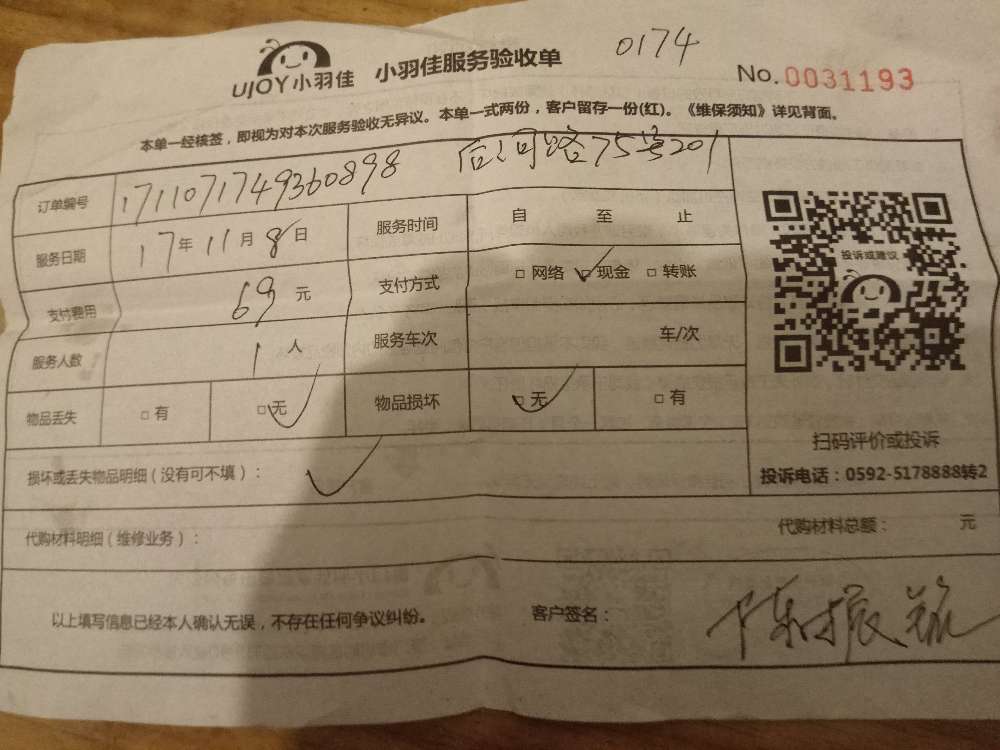 UJOY小羽佳 小羽佳服务验收单 0174
No.0031193
本单一经核签，即视为对本次服务验收无异议。本单一式两份，客户留存一份(红)。《维保须知》详见背面。
订单编号 1711071749360898 后河路75号201
服务日期 17年11月8日 服务时间 自 至 止
支付费用 69元 支付方式 □网络 □现金 □转账
服务人数 1人 服务车次 车/次
物品丢失 □有 □无 物品损坏 □无 □有
投诉或建议
扫码评价或投诉
投诉电话：0592-5178888转2
损坏或丢失物品明细（没有可不填）：
代购材料明细（维修业务）： 代购材料总额： 元
以上填写信息已经本人确认无误，不存在任何争议纠纷。 客户签名： 陈振